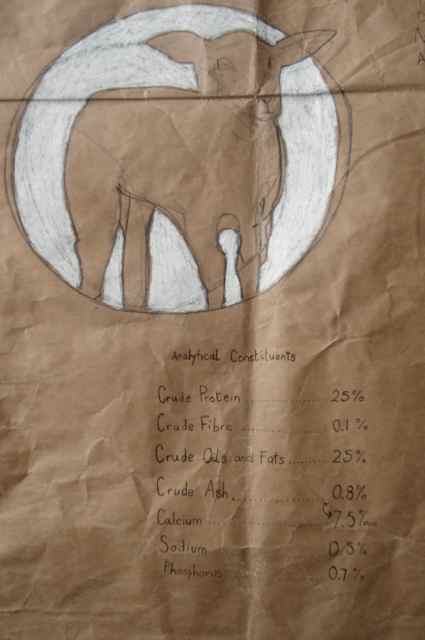 Analytical Constituents
Crude Protein ............ 25%
Crude Fibre ............ 0.1%
Crude Oils and Fats ....... 25%
Crude Ash ............ 0.8%
Calcium ............ 7.5%
Sodium ............ 0.5%
Phosphorus ............ 0.7%